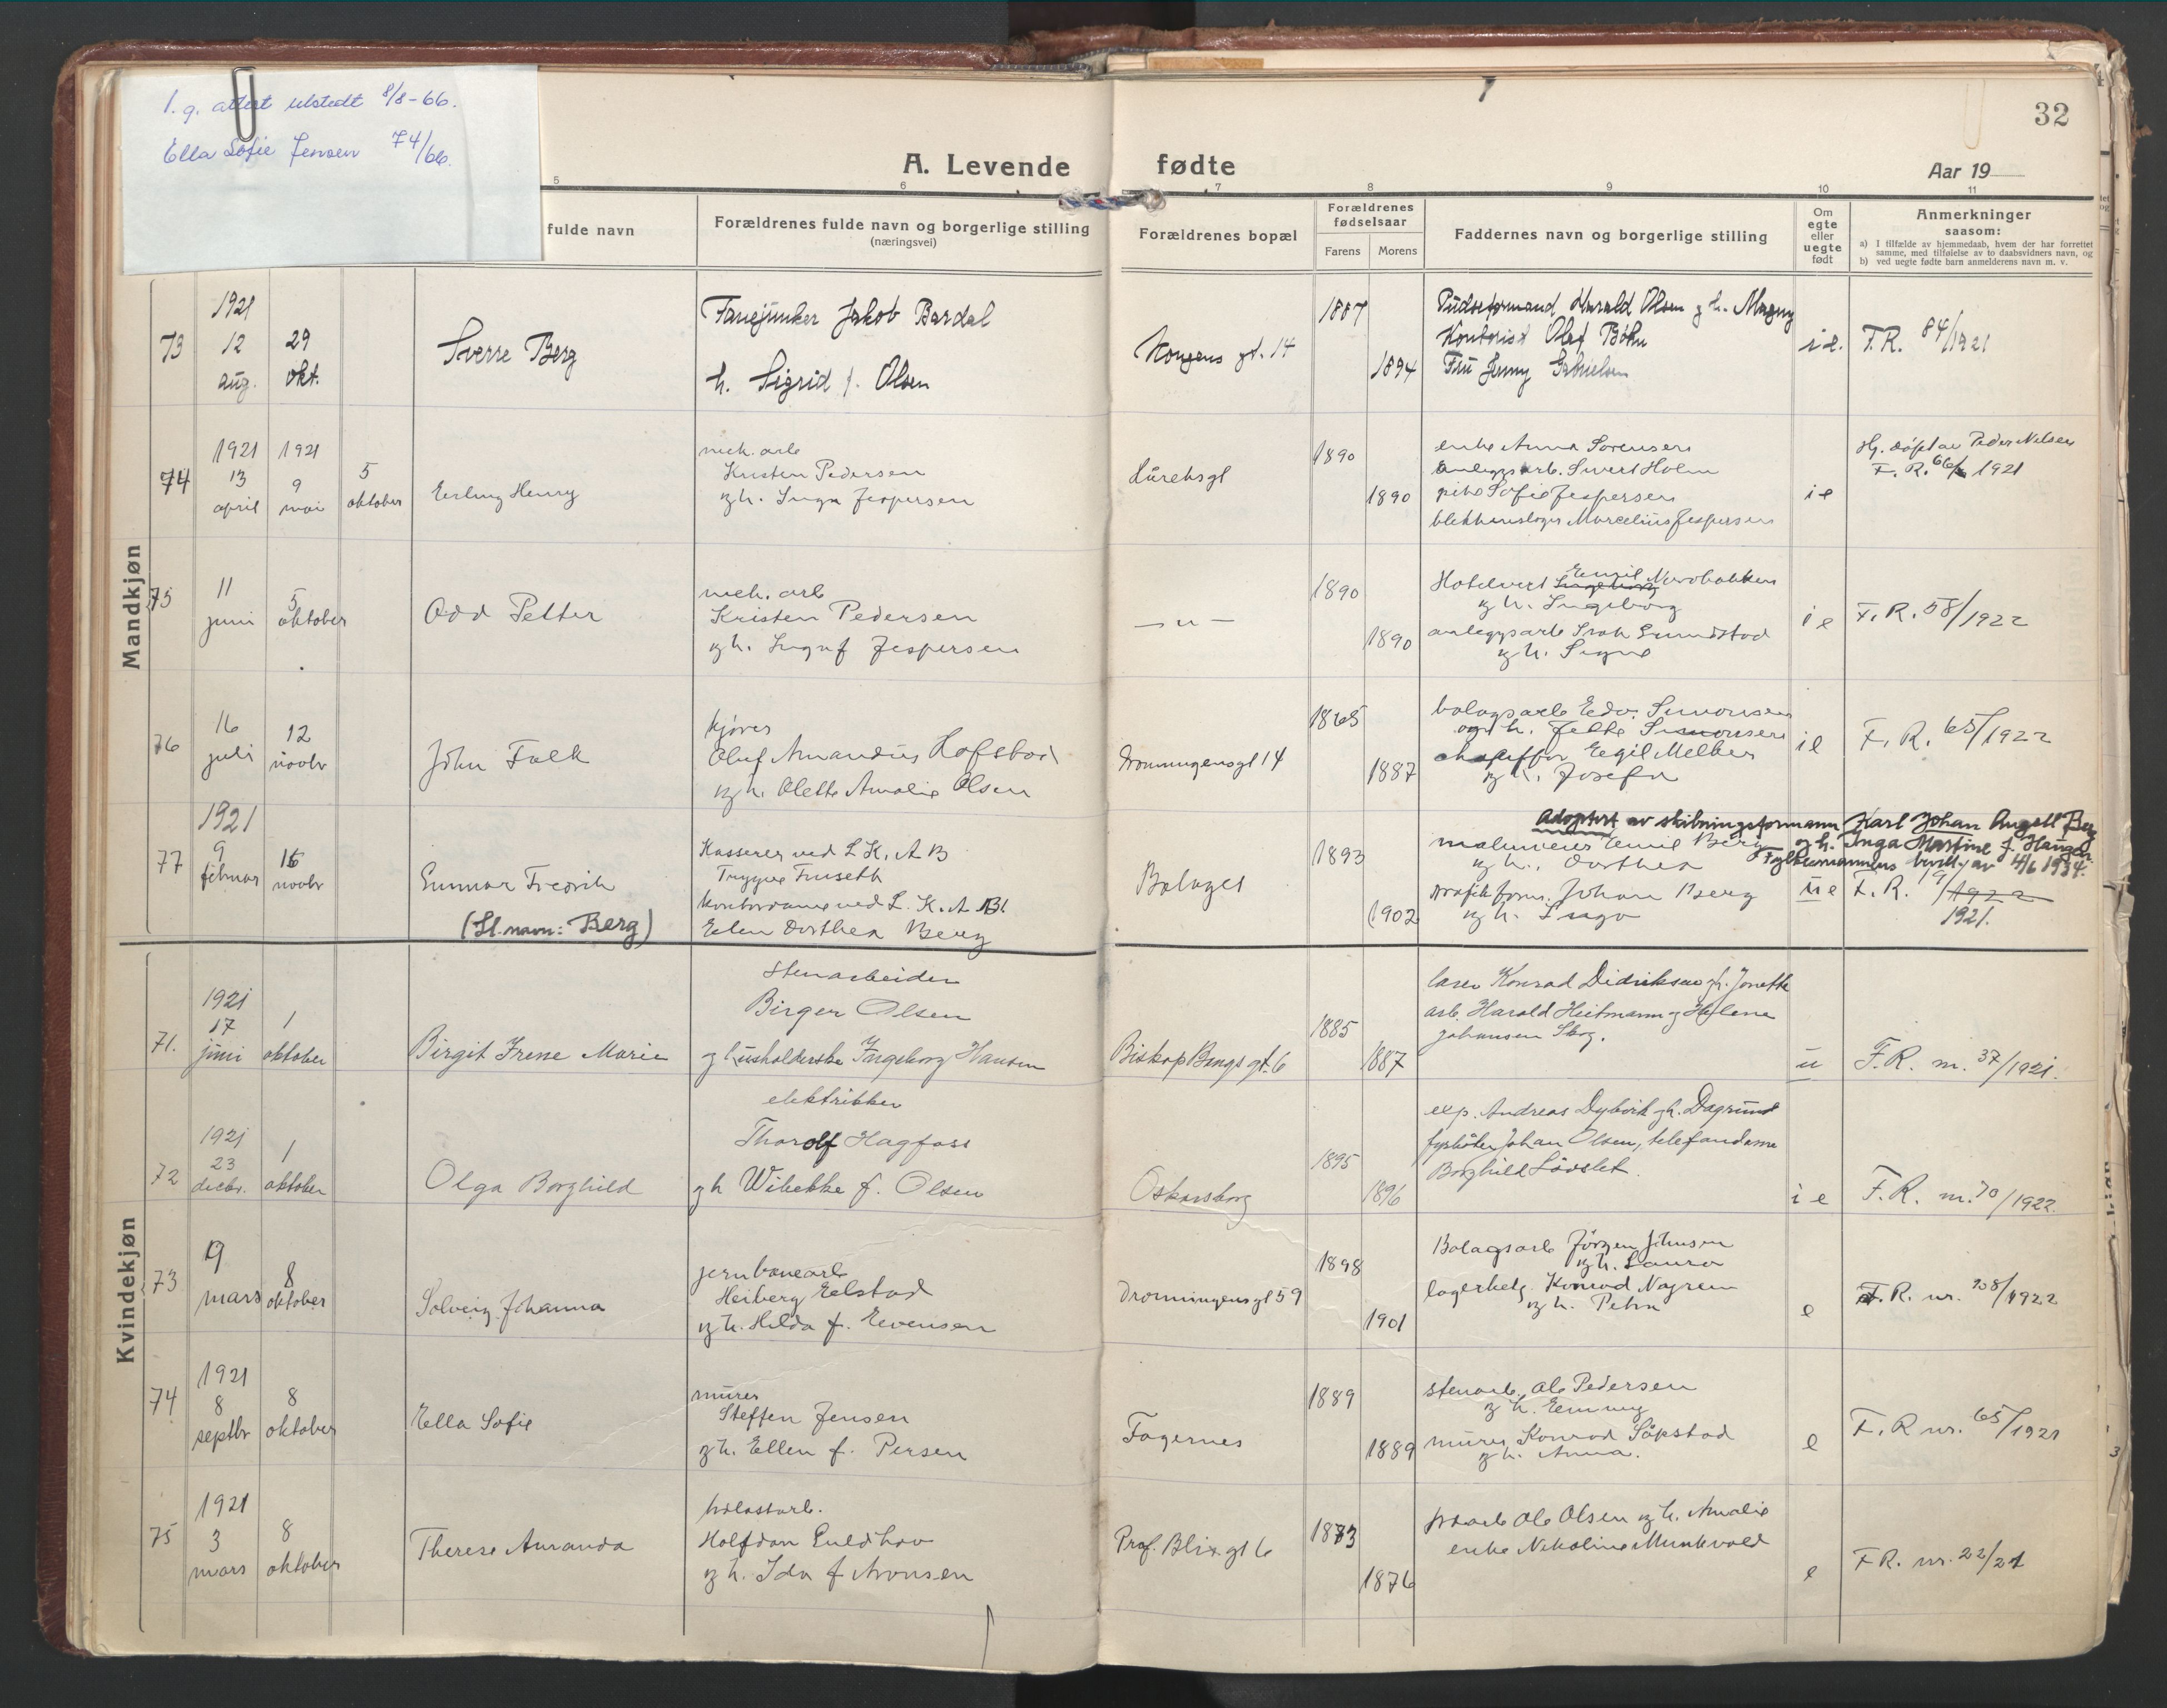 1. g. attest utstedt 8/8-66.
Ella Sofie Jensen 74/66.
32
A. Levende fødte
Aar 19
5 6 7 8 9 10 11
fulde navn
Forældrenes fulde navn og borgerlige stilling
(næringsvei)
Forældrenes bopæl
Forældrenes
fødselsaar
Farens Morens
Faddernes navn og borgerlige stilling
Om
egte
eller
uegte
født
Anmerkninger
saasom:
a) I tilfælde av hjemmedaab, hvem der har forrettet
samme, med tilføielse av to daabsvidners navn, og
b) ved uegte fødte barn anmelderens navn m. v.
Mandkjøn
73
1921
12
aug.
29
okt.
Sverre Berg
Fanejunker Jakob Bardal
h. Sigrid f. Olsen
Kongens gt. 14
1887
1894
Pudseformand Harald Olsen g h. Magny
Kontorist Olaf Bøhn
Fru Jenny Gabrielsen
ie.
F.R. 84/1921
74
1921
13
april
1921
9
mai
5
oktober
Erling Henry
mek. arb
Kristen Pedersen
og h. Inga Jespersen
1890
1890
enke Anna Sorensen
anleggsarb. Sivert Holm
pike Sofie Jespersen
blekkenslager Marcelius Jespersen
ie
Hj. døpt av Peder Nilsen
F. R. 66/1921
75
11
juni
5
oktober
Odd Petter
mek. arb
Kristen Pedersen
og h. Inga f Jespersen
— " —
1890
1890
Hotelvert Emil Nordbakken
og h. Ingeborg
anleggsarb
og h. Signe
ie
F. R. 58/1922
76
16
juli
12
novbr
John Falk
kjører
Oluf Amandus Hofstad
og h. Olette Amalie Olsen
Dronningensgt 14
1865
1887
bolagsarb Edv. Simonsen
og h. Jette Simonsen
chauffør Egil Melker
og h. Josefa
ie
F. R. 65/1922
77
1921
9
februar
15
novbr
Gunnar Fredrik
(Sl. navn: Berg)
Kasserer ved L. K. A B
Trygve Fuseth
kontordame ved L. K. A. B.
Ellen Dorthea Berg
Bolaget
1893
1902
Adoptert av skibningsformann Karl Johan Angell Berg
og h. Inga Martine f. Haugen
Fylkesmannens bevill. av 4/6 1934.
malmveier Emil Berg
og h. Dorthea
Johan Berg
og h. Inga
ue
F. R. 19/1922
1921.
Kvindekjøn
71.
1921
17
juni
1
oktober
Birgit Irene Marie
Stenarbeider
Birger Olsen
g husholderske Ingeborg Hansen
Biskop Bangs gt. 6
1885
1887
Konrad Didriksen g h. Jonette
arb. Harald Heitmann g Helene
Johansen Skog.
u
F. R. nr. 37/1921.
72
1921
23
decbr.
1
oktober
Olga Borghild
elektriker
Thorolf Hagfoss
g h Wibekke f. Olsen
Oskarsborg
1895
1896
exp. Andreas Dybvik g h. Dagrund
fyrbøter Johan Olsen, telefondame
Borghild Løvslet.
ie
F. R. nr. 70/1922
73
19
mars
8
oktober
Solveig Johanna
jernbanearb
Heiberg Elstad
og h. Hilda f. Evensen
Dronningensgt 59
1898
1901
Bolagsarb Jørgen Johnsen
og h. Laura
lagerbetj. Konrad
og h. Petra
e
F. R. nr. 108/1922
74
1921
8
septbr
8
oktober
Ella Sofie
murer
Steffen Jensen
og h. Ellen f. Persen
Fagernes
1889
1889
stenarb. Ole Pedersen
og h. Emmy
murer Konrad Søpstad
og h. Anna.
e
F. R nr. 65/1921
75
1921
3
mars
8
oktober
Therese Amanda
Halfdan Guldhav
og h. Ida f Aronsen
Prof. Blix gt 6
1873
1876
Ole Olsen og h. Amalie
enke Nikoline Munkvold
e
F R. nr. 22/21